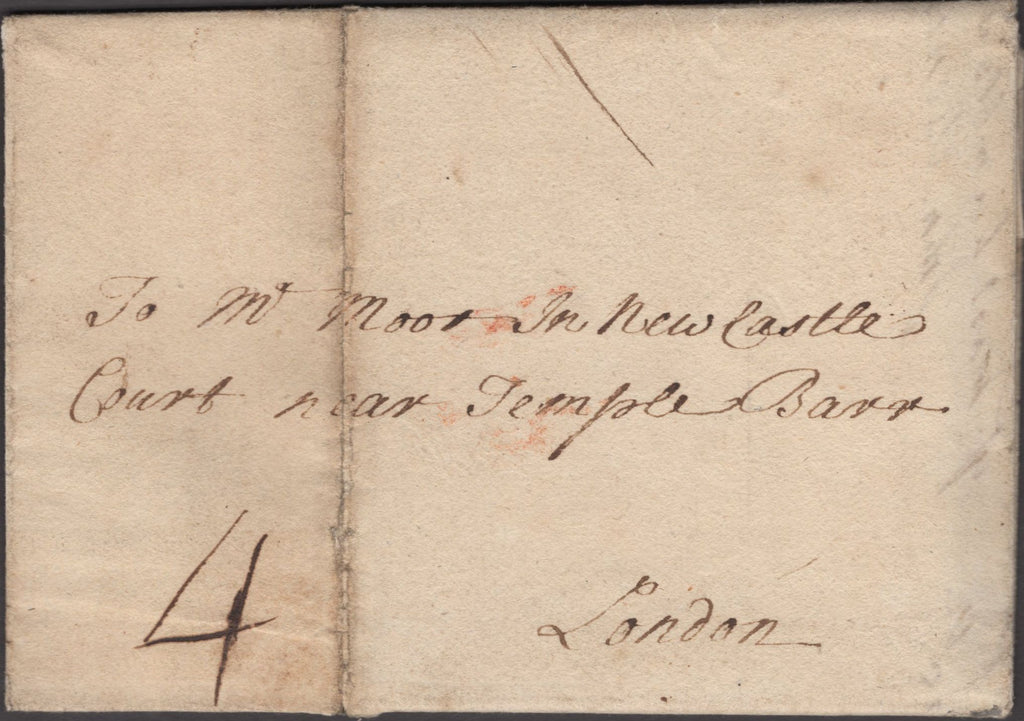 To Mr Moor In New Castle
Court near Temple Barr
4
London